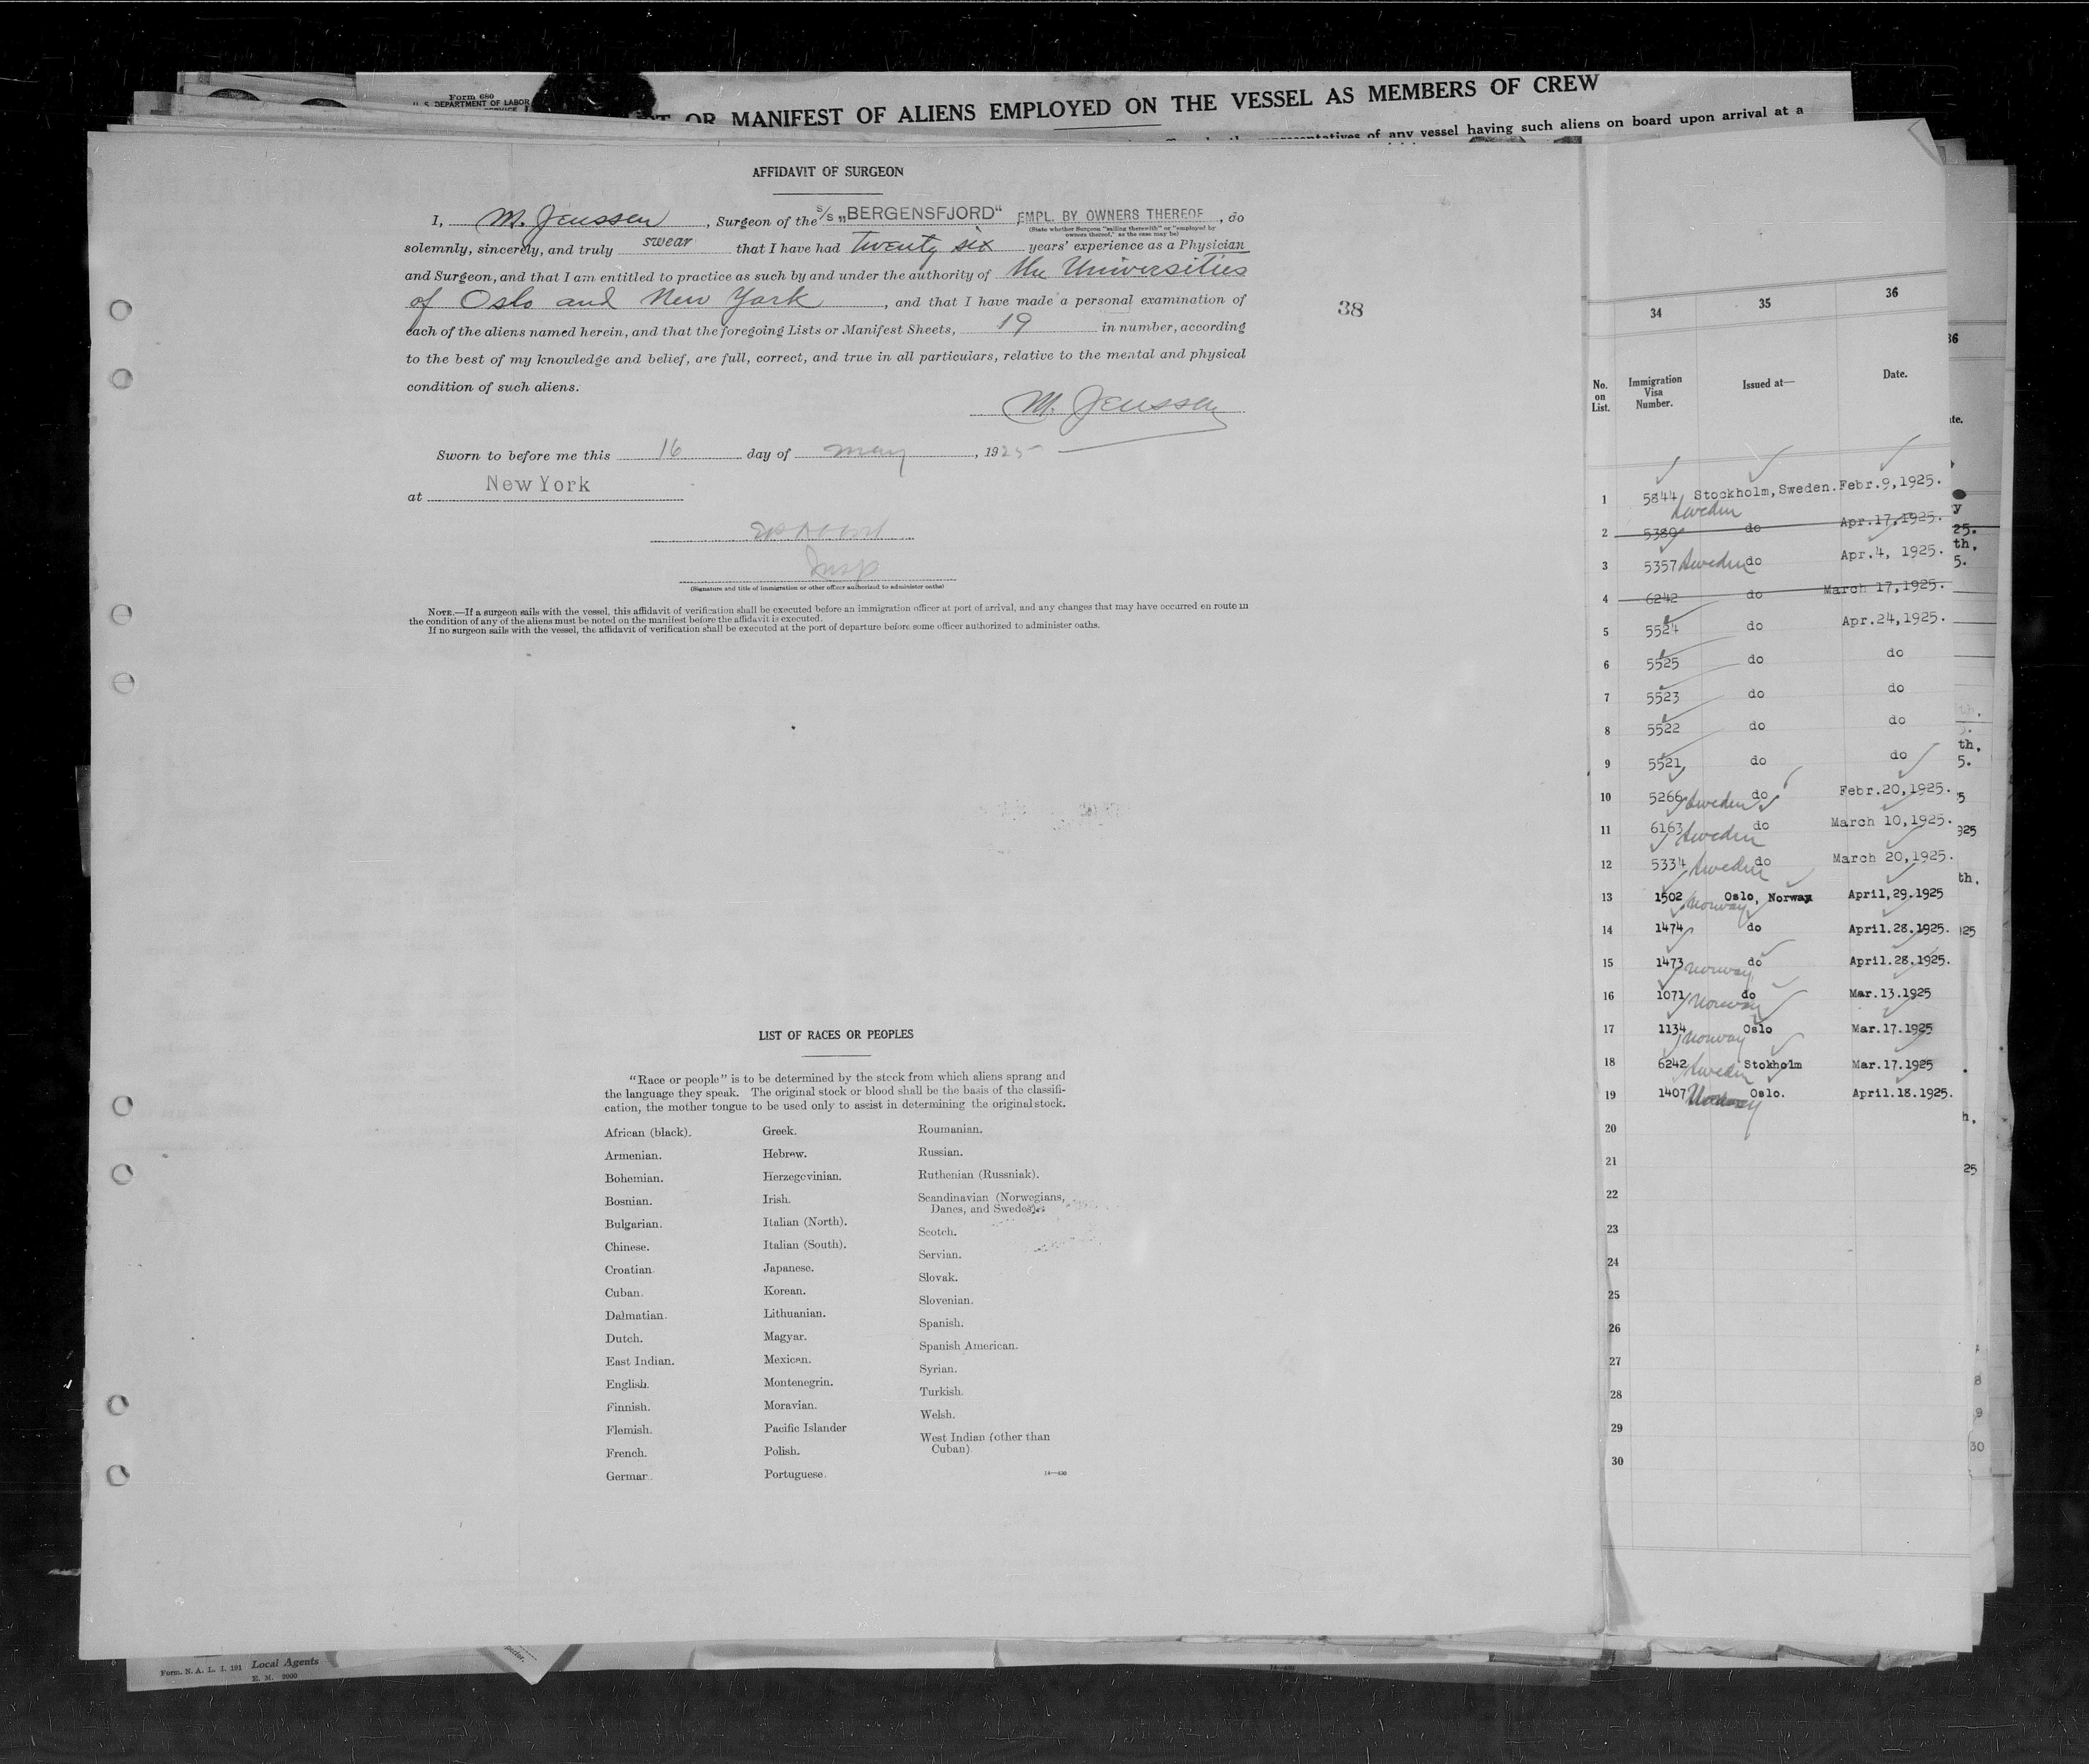 Form 680
U. S. DEPARTMENT OF LABOR
OR MANIFEST OF ALIENS EMPLOYED ON THE VESSEL AS MEMBERS OF CREW
representatives of any vessel having such aliens on board upon arrival at a
AFFIDAVIT OF SURGEON
I, M. Jenssen, Surgeon of the S/S „BERGENSFJORD“ EMPL. BY OWNERS THEREOF, do
(State whether Surgeon "sailing therewith" or "employed by owners thereof," as the case may be)
solemnly, sincerely, and truly swear that I have had twenty six years' experience as a Physician
and Surgeon, and that I am entitled to practice as such by and under the authority of the Universities
of Oslo and New York, and that I have made a personal examination of
each of the aliens named herein, and that the foregoing Lists or Manifest Sheets, 19 in number, according
to the best of my knowledge and belief, are full, correct, and true in all particulars, relative to the mental and physical
condition of such aliens.
M. Jenssen
Sworn to before me this 16 day of May, 1925
at New York
Insp
(Signature and title of immigration or other officer authorized to administer oaths)
NOTE.—If a surgeon sails with the vessel, this affidavit of verification shall be executed before an immigration officer at port of arrival, and any changes that may have occurred en route in
the condition of any of the aliens must be noted on the manifest before the affidavit is executed.
If no surgeon sails with the vessel, the affidavit of verification shall be executed at the port of departure before some officer authorized to administer oaths.
38
LIST OF RACES OR PEOPLES
"Race or people" is to be determined by the stock from which aliens sprang and
the language they speak. The original stock or blood shall be the basis of the classifi-
cation, the mother tongue to be used only to assist in determining the original stock.
African (black).
Armenian.
Bohemian.
Bosnian.
Bulgarian.
Chinese.
Croatian.
Cuban.
Dalmatian.
Dutch.
East Indian.
English.
Finnish.
Flemish.
French.
German.
Greek.
Hebrew.
Herzegovinian.
Irish.
Italian (North).
Italian (South).
Japanese.
Korean.
Lithuanian.
Magyar.
Mexican.
Montenegrin.
Moravian.
Pacific Islander
Polish.
Portuguese.
Roumanian.
Russian.
Ruthenian (Russniak).
Scandinavian (Norwegians,
Danes, and Swedes).
Scotch.
Servian.
Slovak.
Slovenian.
Spanish.
Spanish American.
Syrian.
Turkish.
Welsh.
West Indian (other than
Cuban).
14—430
34 35 36
No. on List. Immigration Visa Number. Issued at— Date.
1 5844 Stockholm, Sweden. Febr.9,1925.
Sweden
2 5380 do Apr.17,1925.
3 5357 Sweden do Apr.4, 1925.
4 6242 do March 17,1925.
5 5524 do Apr.24,1925.
6 5525 do do
7 5523 do do
8 5522 do do
9 5521 do do
10 5266 Sweden do Febr.20,1925.
11 6163 Sweden do March 10,1925.
12 5334 Sweden do March 20,1925.
13 1502 Norway Oslo, Norway April,29.1925
14 1474 do April.28.1925.
15 1473 Norway do April.28.1925.
16 1071 Norway do Mar.13.1925
17 1134 Norway Oslo Mar.17.1925
18 6242 Sweden Stokholm Mar.17.1925
19 1407 Norway Oslo. April.18.1925.
20
21
22
23
24
25
26
27
28
29
30
Form. N. A. L. I. 101 Local Agents
E. M. 2000